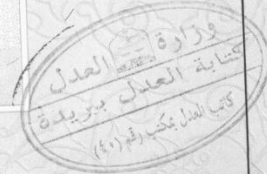 وزارة العدل
كتابة العدل ببريدة
كاتب العدل بمكتب رقم (٤٠١)